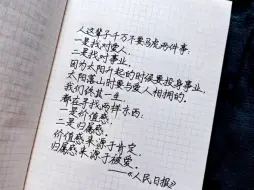 人这辈子千万不要马虎两件事:
一是找对爱人.
二是找对事业.
因为太阳升起的时候要投身事业.
太阳落山时要与爱人相拥的.
我们终其一生.
都在寻找两样东西:
一是价值感.
二是归属感.
价值感来源于肯定.
归属感来源于被爱.
——《人民日报》